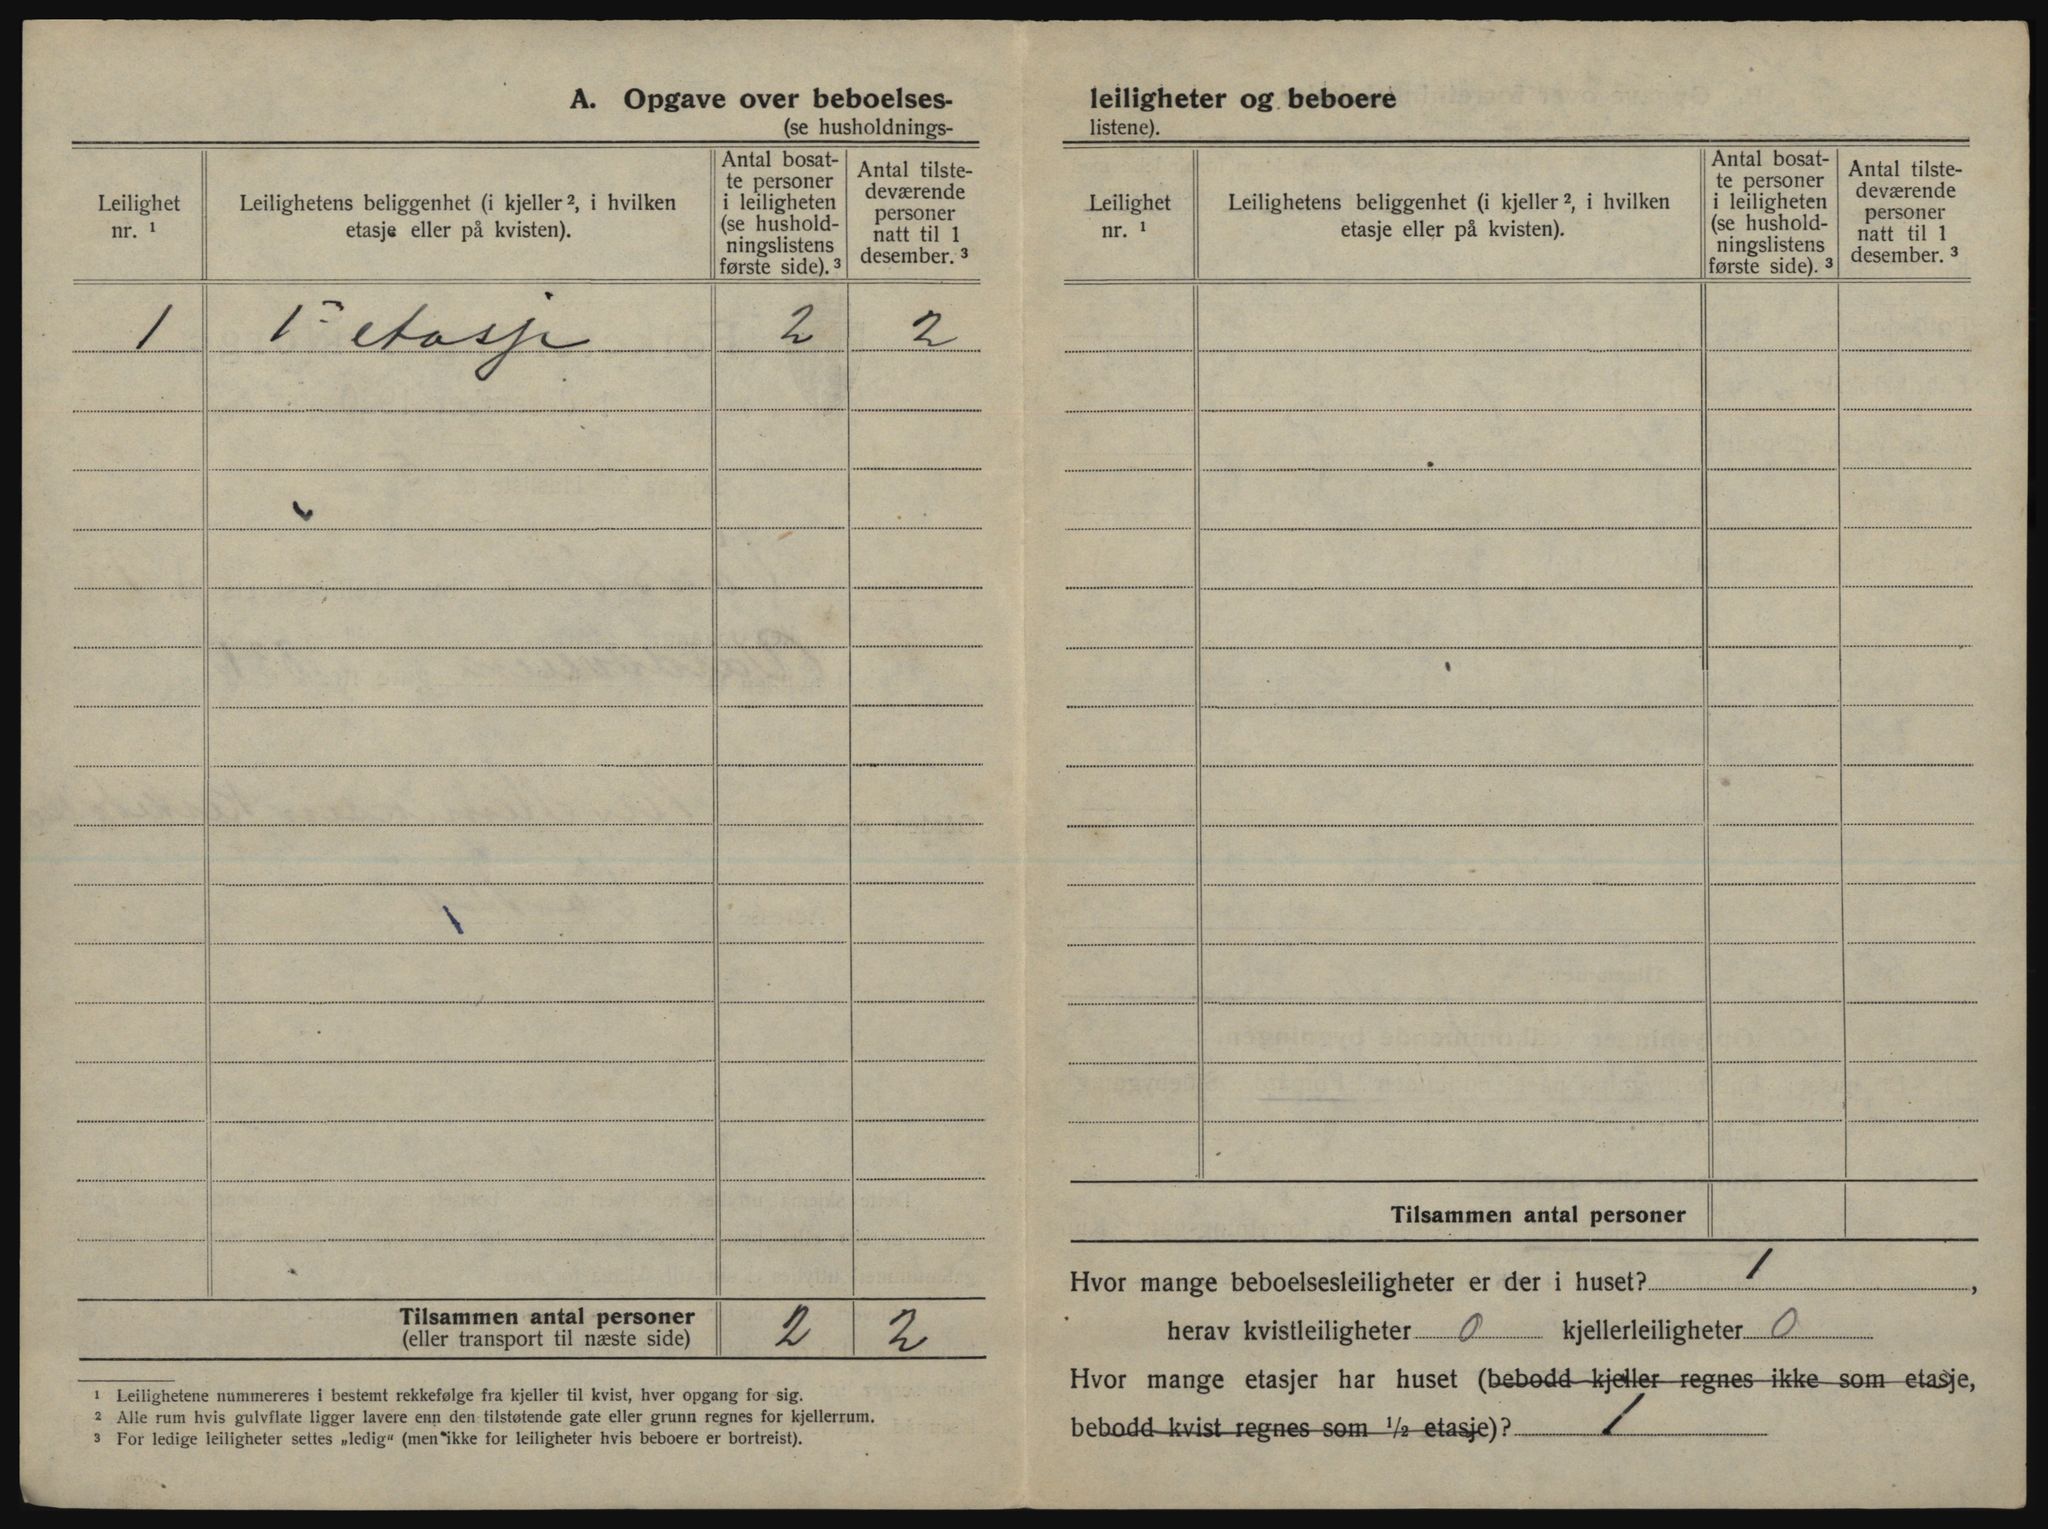 A. Opgave over beboelses-
(se husholdnings-
Leilighet
nr. ¹
Leilighetens beliggenhet (i kjeller ², i hvilken
etasje eller på kvisten).
Antal bosat-
te personer
i leiligheten
(se hushold-
ningslistens
første side). ³
Antal tilste-
deværende
personer
natt til 1
desember. ³
1 1ᵉ etasje 2 2
Tilsammen antal personer 2 2
(eller transport til næste side)
¹ Leilighetene nummereres i bestemt rekkefølge fra kjeller til kvist, hver opgang for sig.
² Alle rum hvis gulvflate ligger lavere enn den tilstøtende gate eller grunn regnes for kjellerrum.
³ For ledige leiligheter settes „ledig“ (men ikke for leiligheter hvis beboere er bortreist).
leiligheter og beboere
listene).
Leilighet
nr. ¹
Leilighetens beliggenhet (i kjeller ², i hvilken
etasje eller på kvisten).
Antal bosat-
te personer
i leiligheten
(se hushold-
ningslistens
første side). ³
Antal tilste-
deværende
personer
natt til 1
desember. ³
Tilsammen antal personer
Hvor mange beboelsesleiligheter er der i huset? 1,
herav kvistleiligheter 0 kjellerleiligheter 0
Hvor mange etasjer har huset (bebodd kjeller regnes ikke som etasje,
bebodd kvist regnes som ½ etasje)? 1